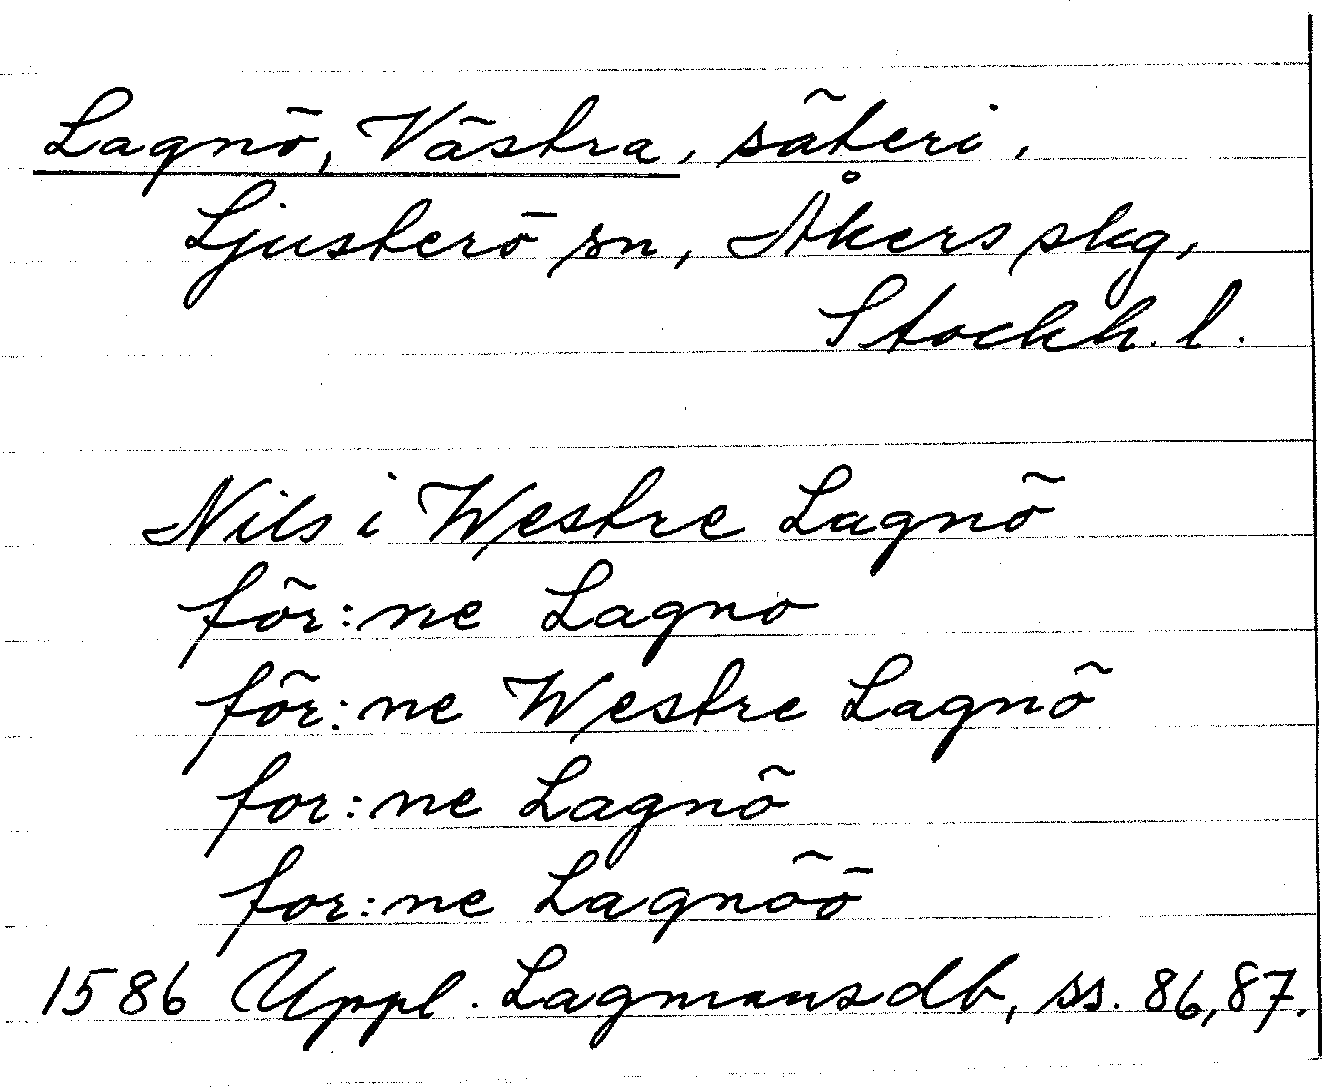 Lagnö, Västra, säteri.
Ljusterö sn, Åkers skg,
Stockh. l.
Nils i Westre Lagnö
för:ne Lagno
för:ne Westre Lagnö
for:ne Lagnö
for:ne Lagnöö
1586 Uppl. Lagmansdb, ss. 86, 87.